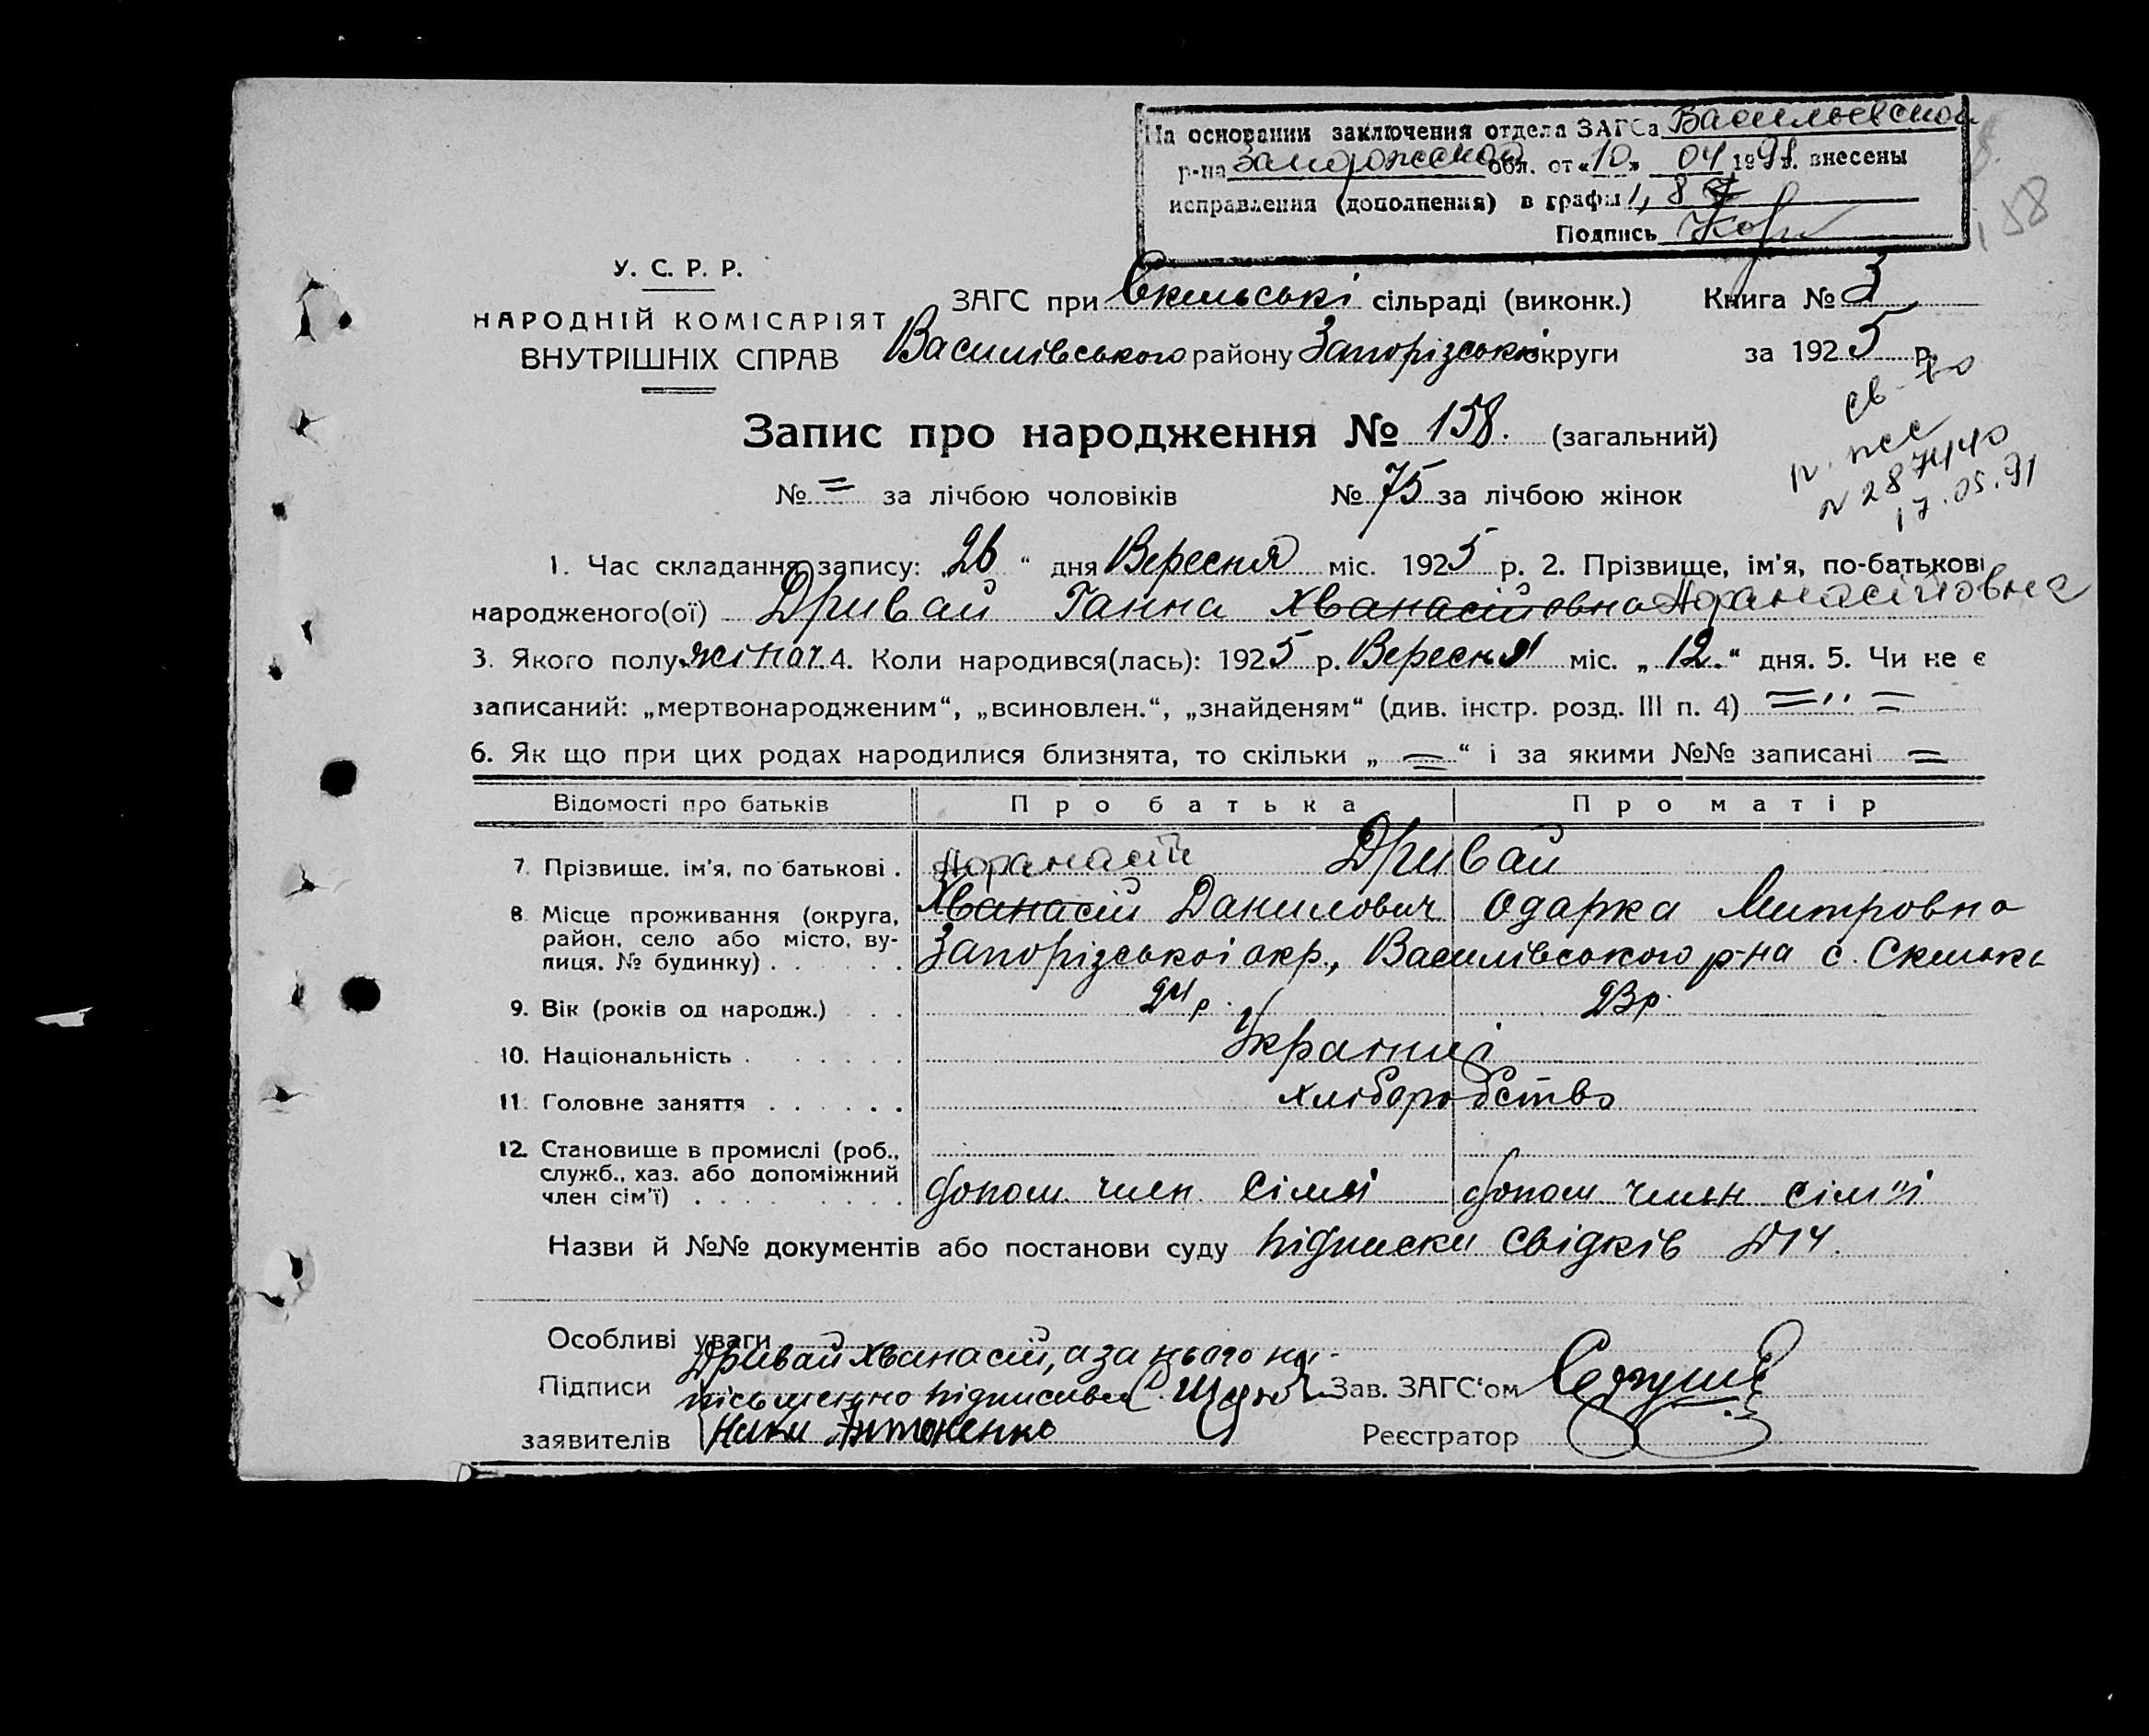 На основании заключения отдела ЗАГСа Васильевской
р-на Запорожской обл. от «10» 04 1991г. внесены
исправления (дополнения) в графы 1, 8
Подпись
158
У. С. Р. Р.
НАРОДНІЙ КОМІСАРІЯТ
ВНУТРІШНІХ СПРАВ
ЗАГС при Скельські сільраді (виконк.) Книга № 3
Василівського району Запорізської округи за 1925 р.
св-во
п. пес
N 287440
17.05.91
Запис про народження № 158. (загальний)
№ = за лічбою чоловіків № 75 за лічбою жінок
1. Час складання запису: „26“ дня Вересня міс. 1925 р. 2. Прізвище, ім'я, по-батькові
народженого(ої) Дривай Ганна Хванасійовна Афанасійовна
3. Якого полу жіноч. 4. Коли народився(лась): 1925 р. Вересня міс. „12.“ дня. 5. Чи не є
записаний: „мертвонародженим“, „всиновлен.“, „знайденям“ (див. інстр. розд. III п. 4) = ,, =
6. Як що при цих родах народилися близнята, то скільки „ = “ і за якими №№ записані =
Відомості про батьків Про батька Про матір
7. Прізвище, ім'я, по батькові . Афанасій Дривай
Хванасій Данилович Одарка Митровна
8. Місце проживання (округа,
район, село або місто, ву-
лиця, № будинку) . . . . . Запорізської окр., Василівського р-на с. Скельки
9. Вік (років од народж.) . . . 24 р. 23 р.
10. Національність . . . . . . Українці
11. Головне заняття . . . . . . хліборобство
12. Становище в промислі (роб.,
служб., хаз. або допоміжний
член сім'ї) . . . . . . . . допом. член. сімьї допом член сім"ї
Назви й №№ документів або постанови суду підписки свідків №14.
Особливі уваги
Дривай Хванасій, а за нього не-
Підписи письменно підписався Зав. ЗАГС'ом
заявителів Антоненко Реєстратор